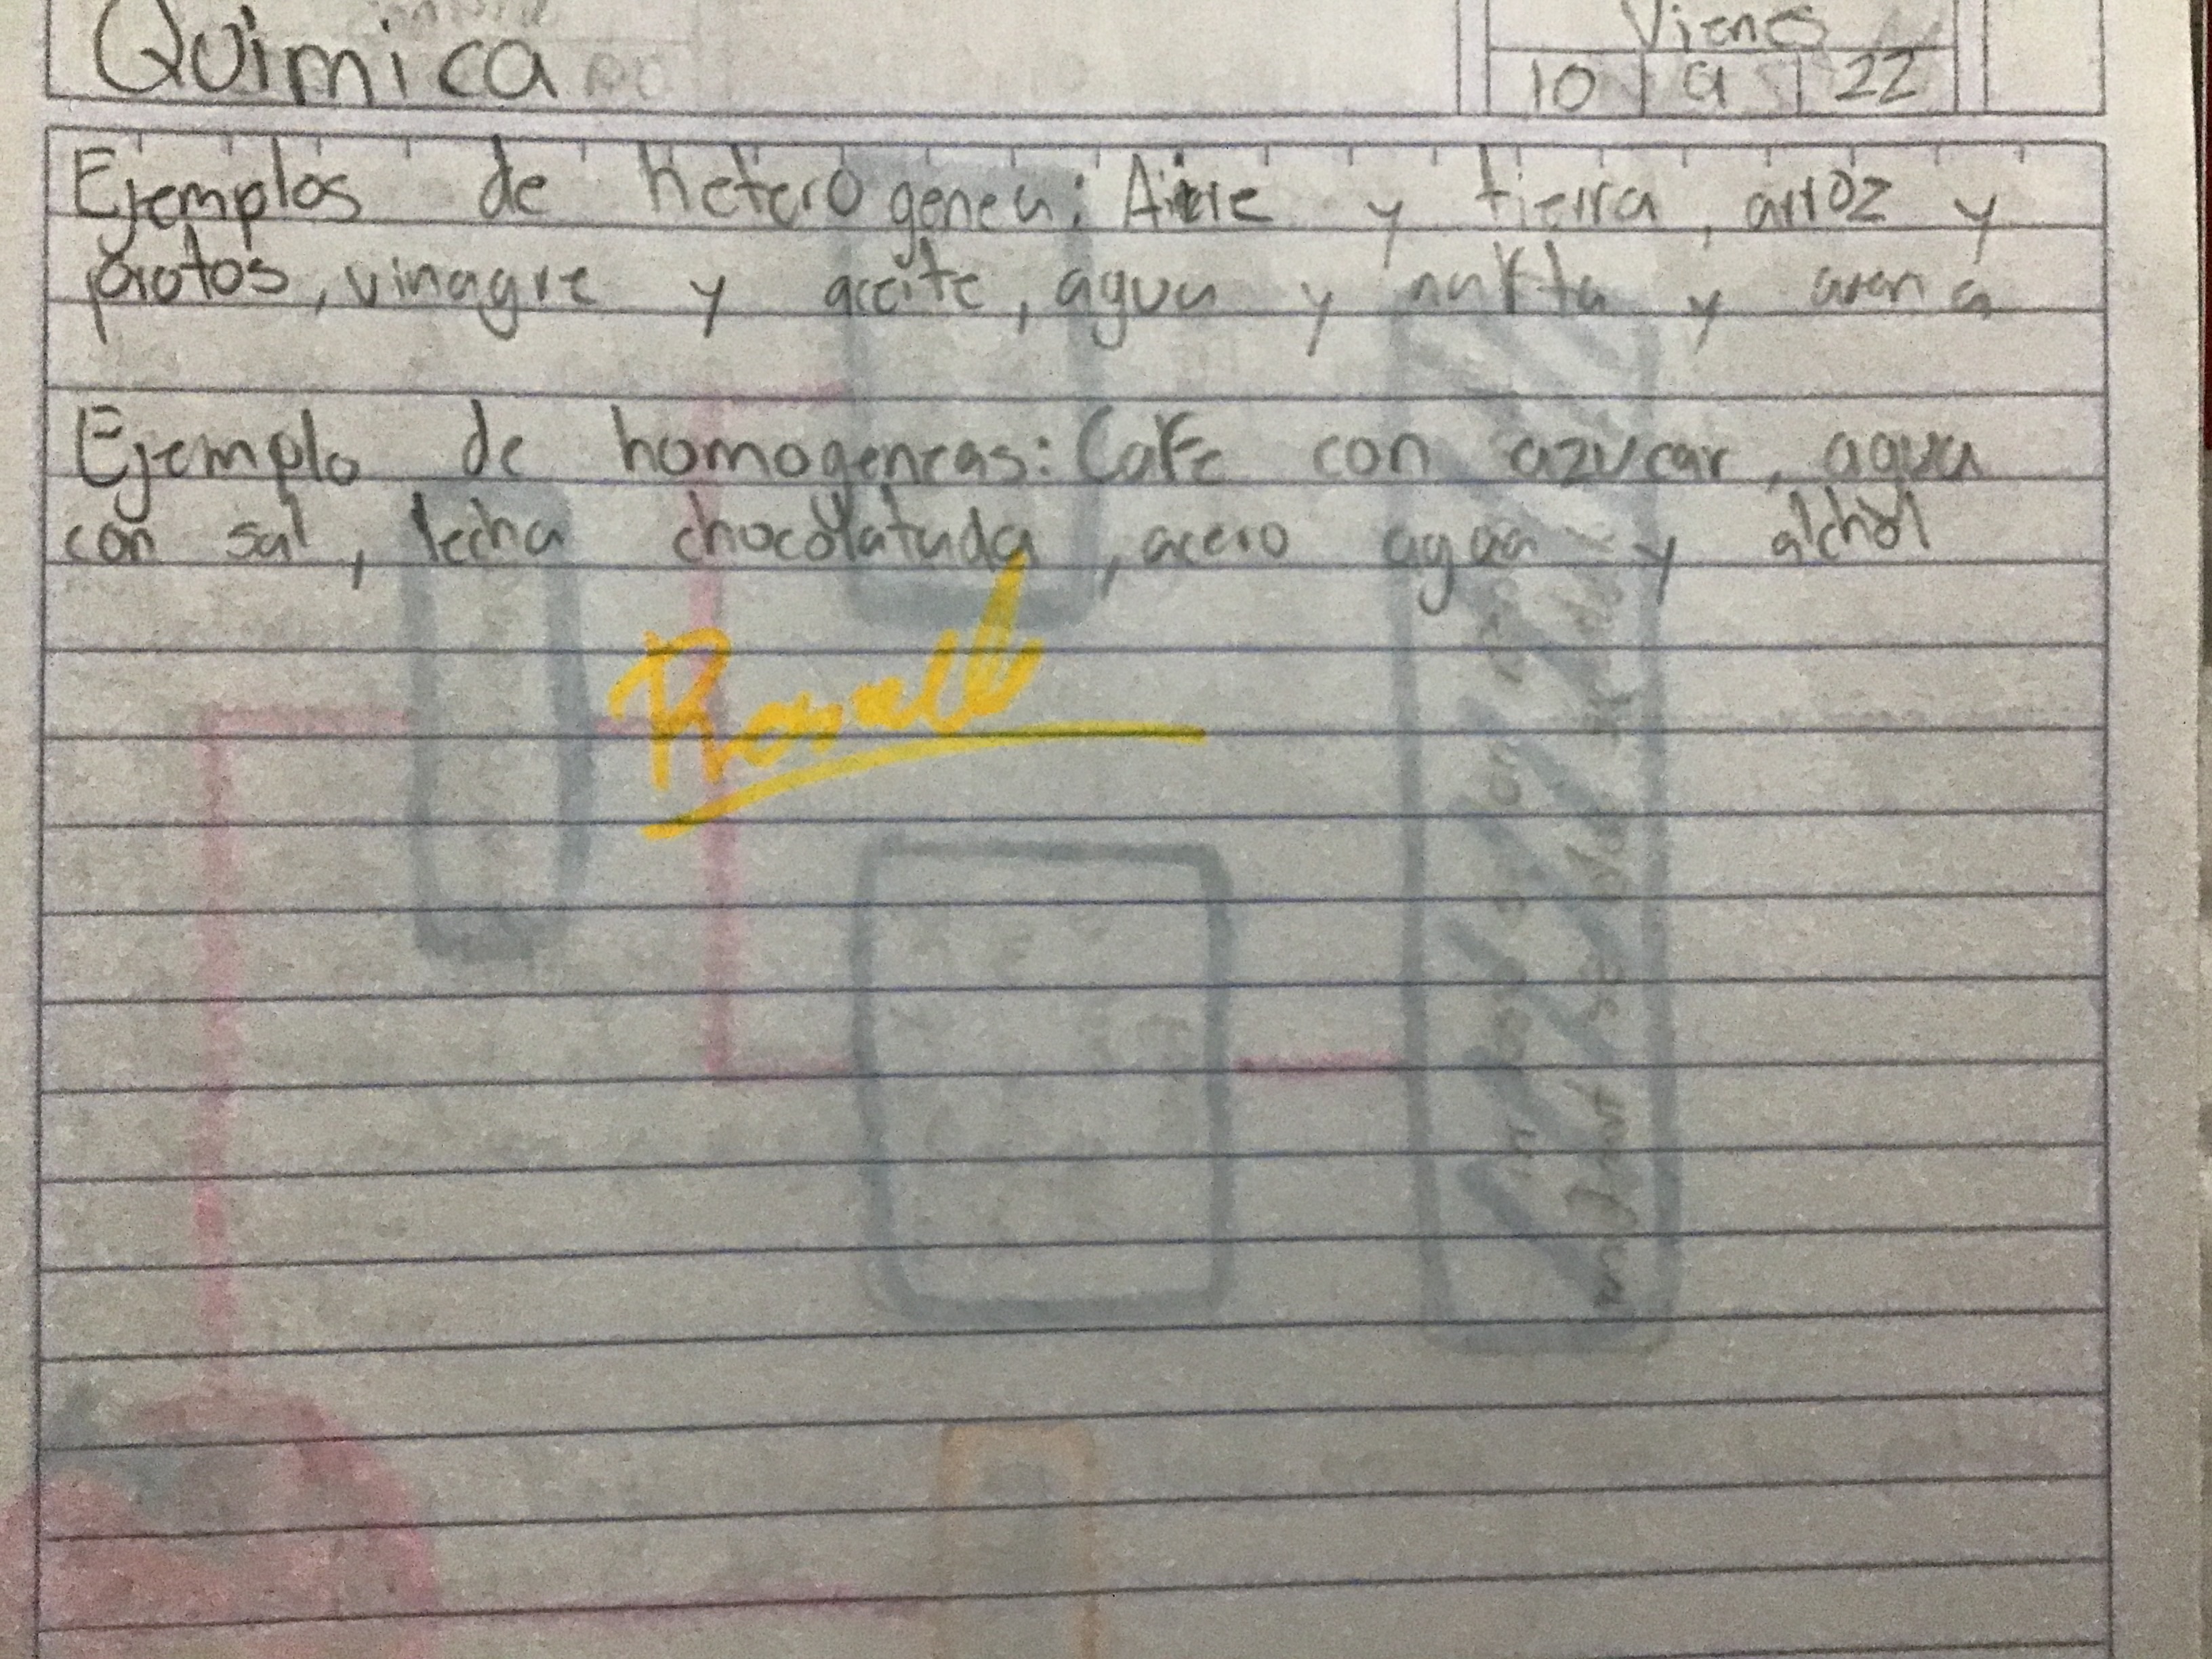 Quimica
Vienes
10 9 22
Ejemplos de heterogenea: Aire y tierra, arroz y
porotos, vinagre y aceite, agua y nafta y arena
Ejemplo de homogeneas: Cafe con azucar, agua
con sal, lecha chocolatada, acero agua y alchol